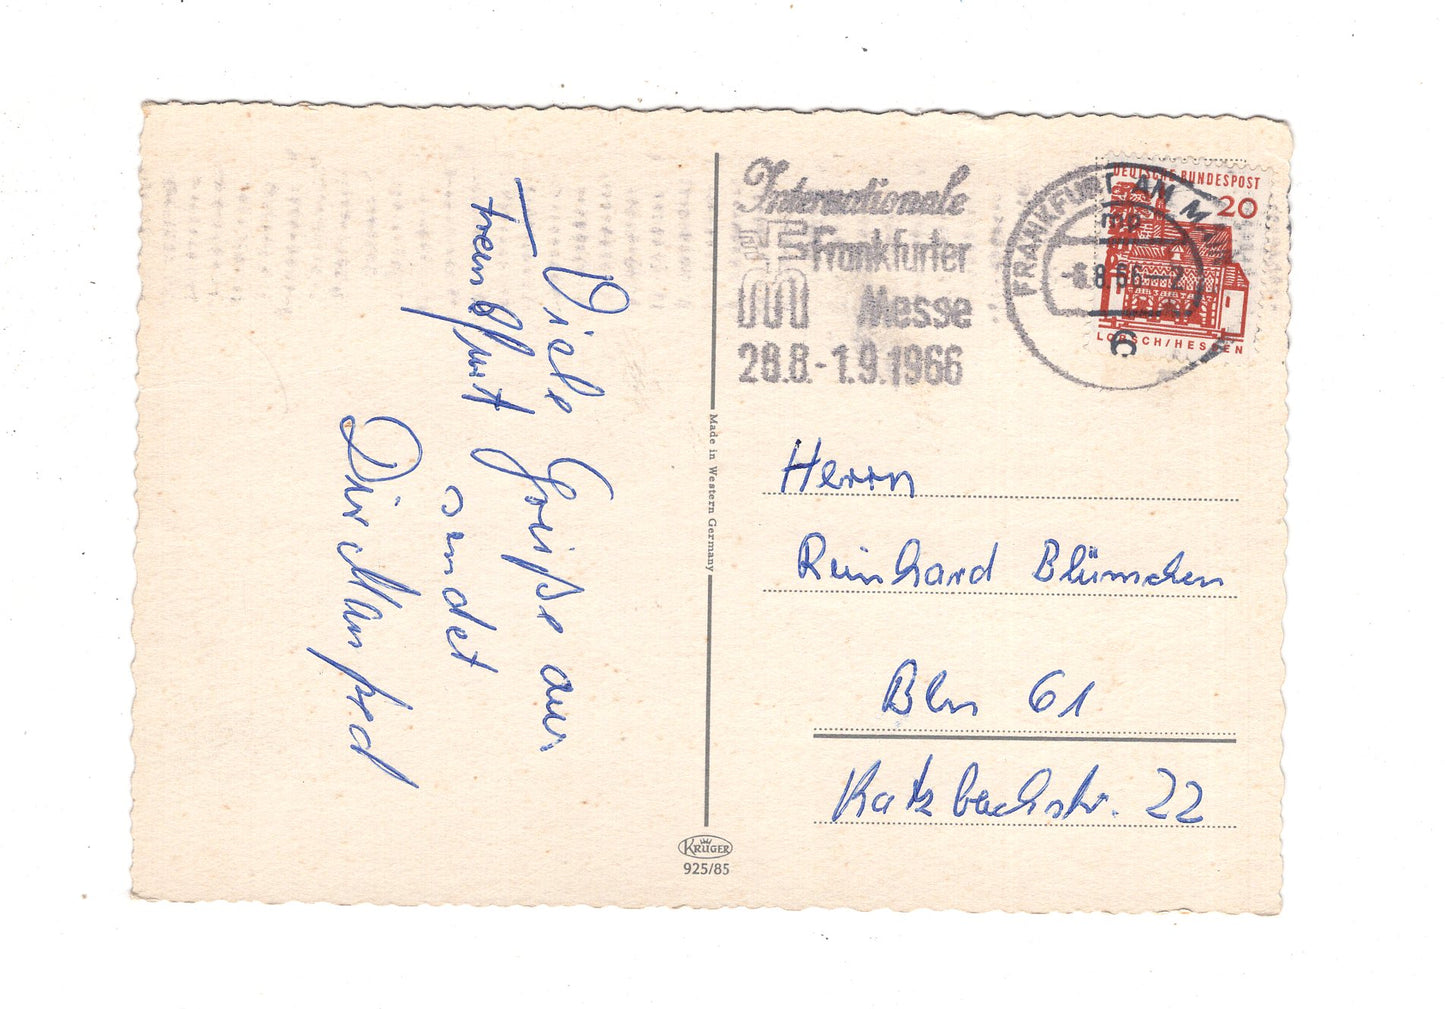 Viele Grüße aus
Frankfurt
sendet
Dir Manfred
Made in Western Germany
KRÜGER
925/85
Internationale
Frankfurter
Messe
28.8.-1.9.1966
FRANKFURT AM MAIN
-8.8.66-
c
DEUTSCHE BUNDESPOST
20
LORSCH/HESSEN
Herrn
Reinhard Blümchen
Bln 61
Katzbachstr. 22